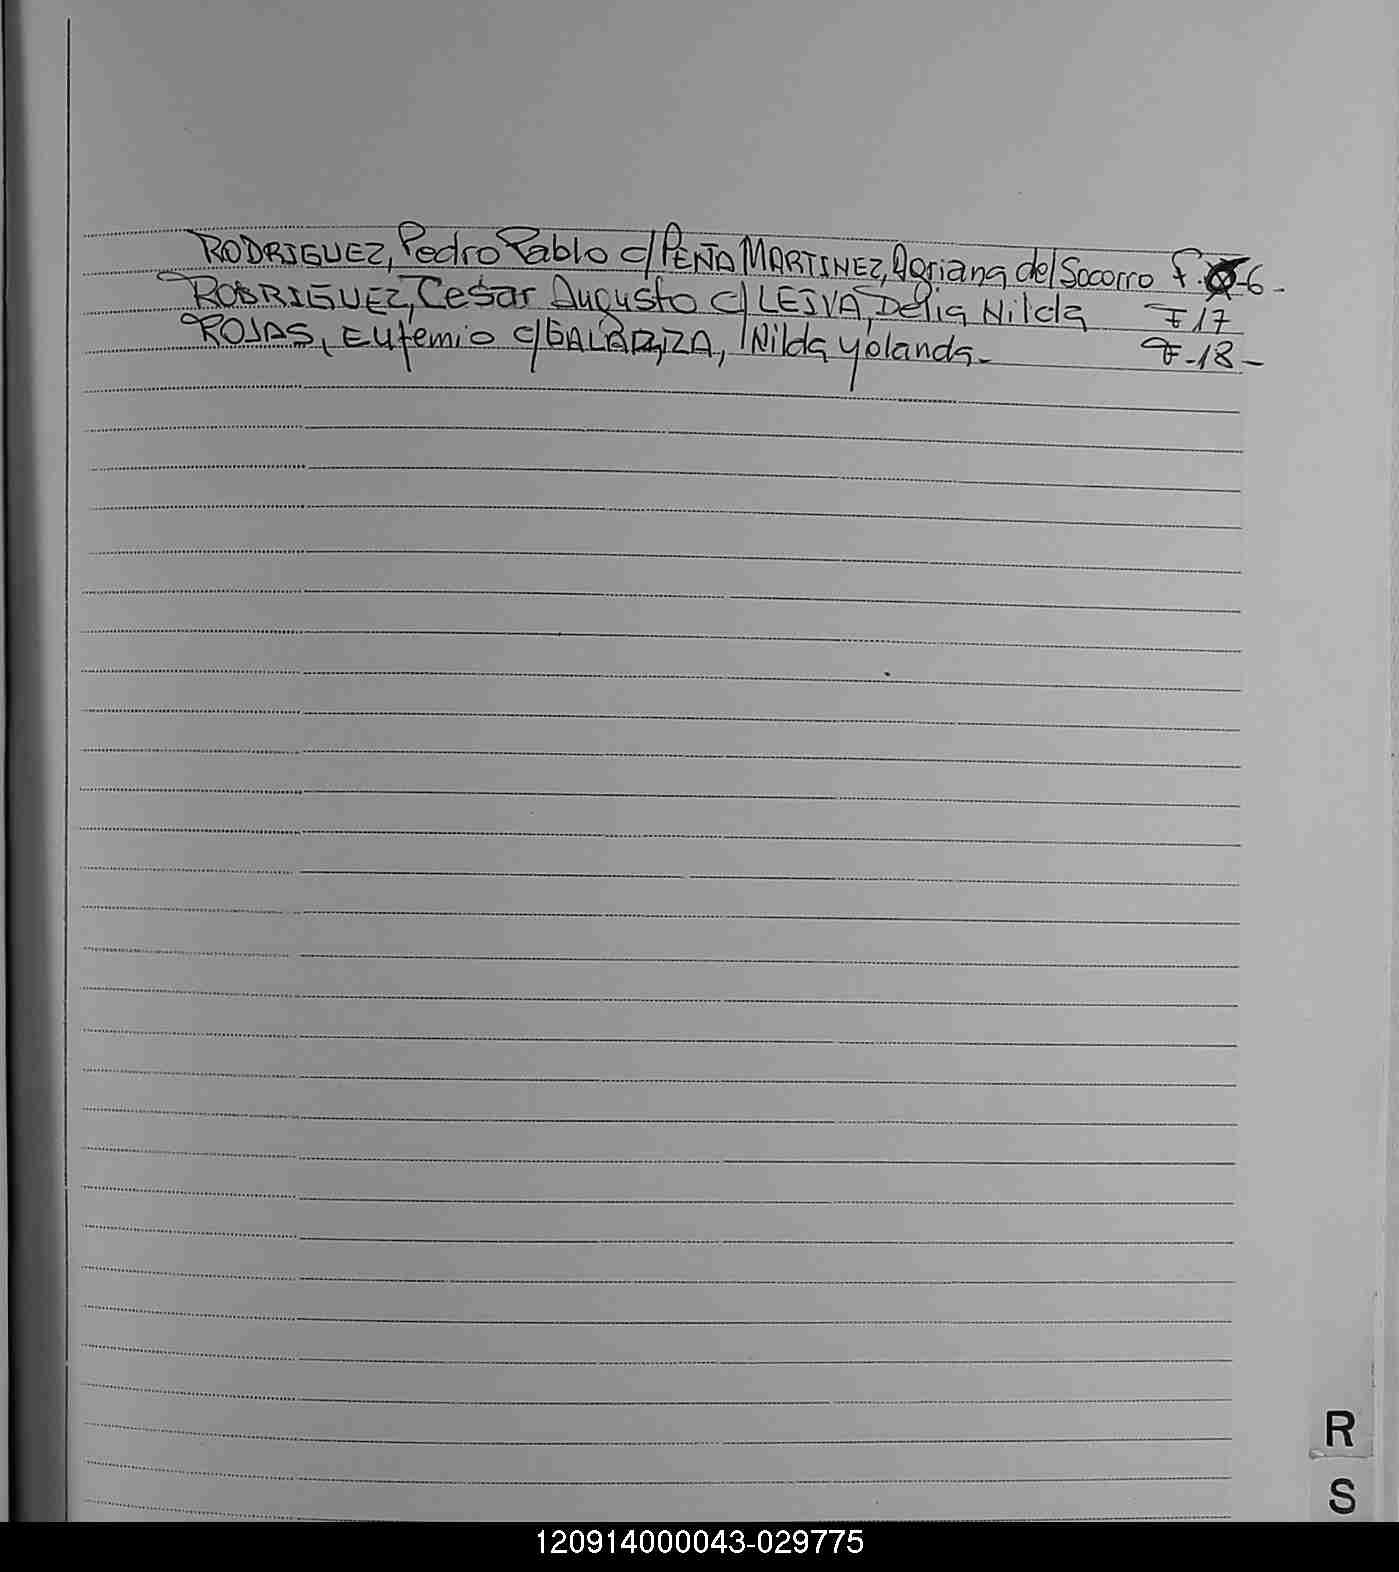 RODRIGUEZ, Pedro Pablo c/ PEÑA MARTINEZ, Adriana del Socorro F. 6-
RODRIGUEZ, Cesar Augusto c/ LEIVA, Delia Nilda F 17
ROJAS, Eufemio c/ GALARZA, Nilda Yolanda- F-18-
R
S
120914000043-029775